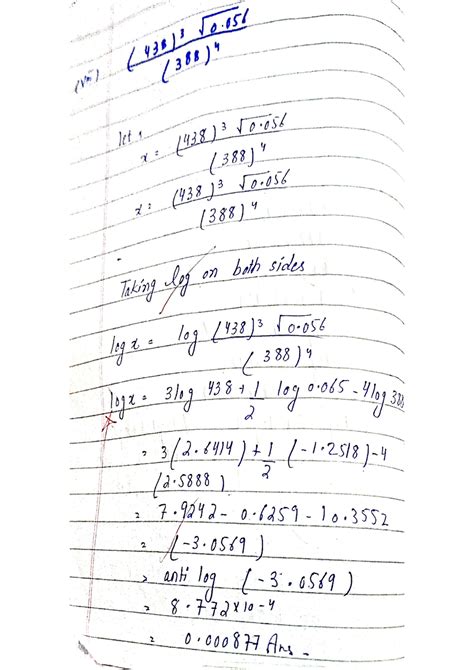 (viii) (438)³ √0.056 / (388)⁴
let,
x = (438)³ √0.056 / (388)⁴
x = (438)³ √0.056 / (388)⁴
Taking log on both sides
log x = log (438)³ √0.056 / (388)⁴
log x = 3log 438 + 1/2 log 0.065 - 4log 388
= 3(2.6414) + 1/2 (-1.2518) - 4
(2.5888)
= 7.9242 - 0.6259 - 10.3552
= (-3.0569)
= anti log (-3.0569)
= 8.772×10-4
= 0.000877 Ans.